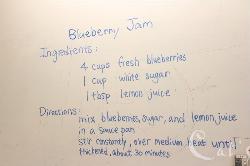 Blueberry Jam
Ingredients:
4 cups fresh blueberries
1 cup white sugar
1 tbsp lemon juice
Directions:
mix blueberries, sugar, and lemon juice
in a sauce pan
stir constantly, over medium heat until
thickened, about 30 minutes